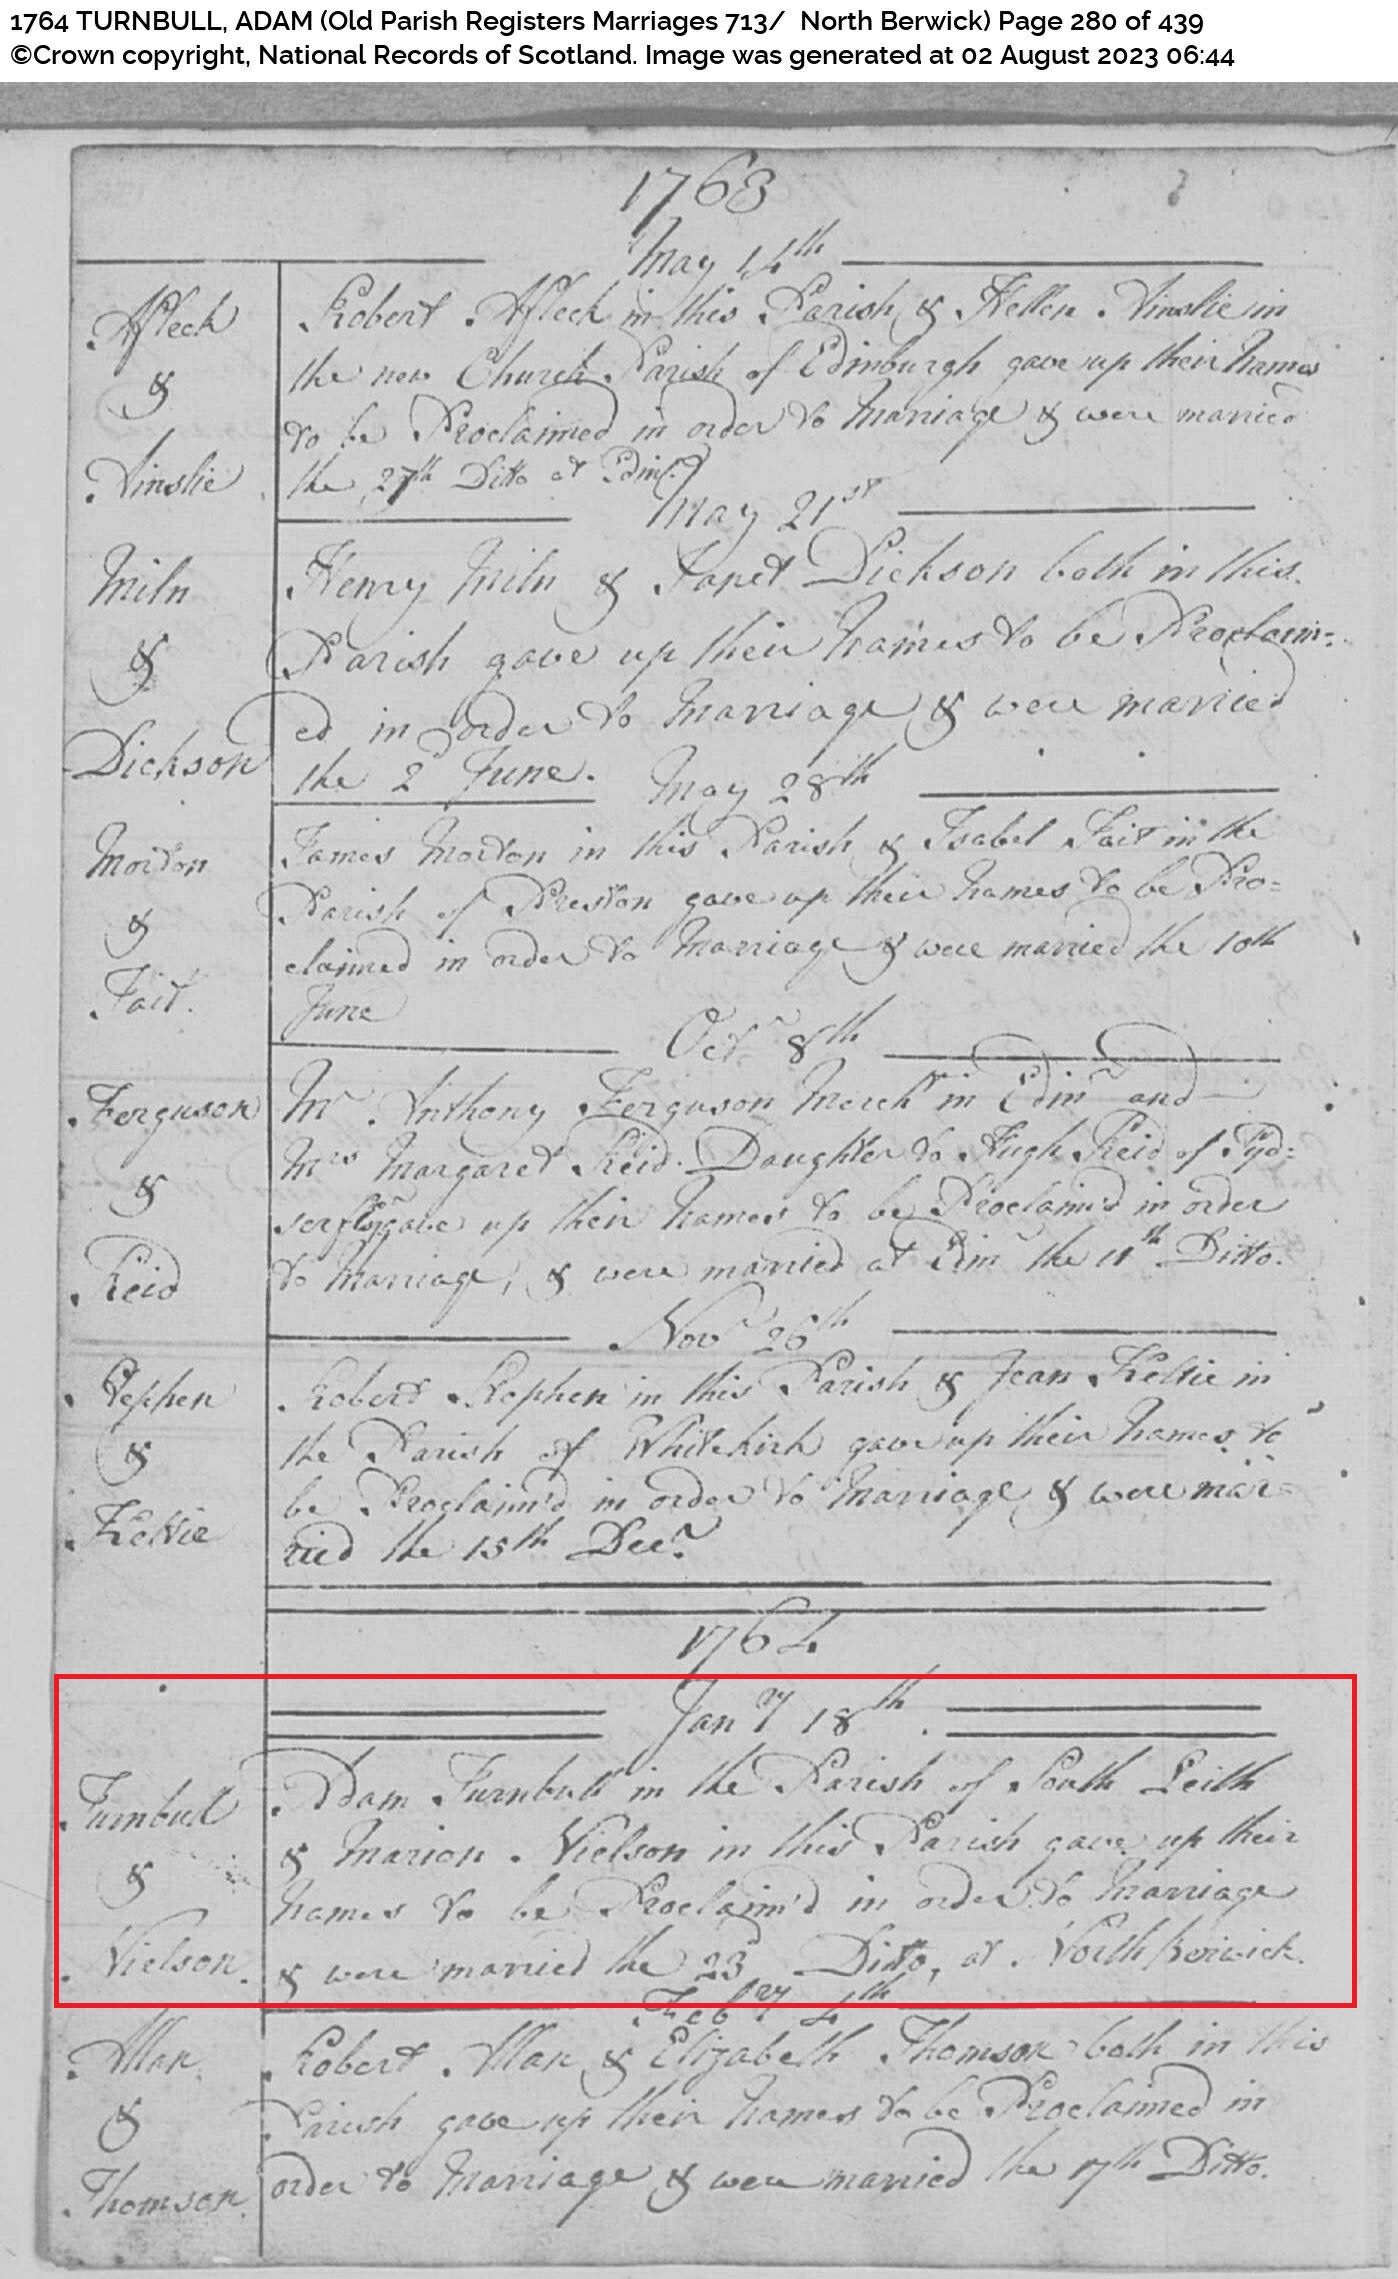 1764 TURNBULL, ADAM (Old Parish Registers Marriages 713/ North Berwick) Page 280 of 439
©Crown copyright, National Records of Scotland. Image was generated at 02 August 2023 06:44
1763
May 14th
Afleck
&
Ainslie
Robert Afleck in this Parish & Hellen Ainslie in
the new Church Parish of Edinburgh gave up their names
to be Proclaimed in order to Marriage & were married
the 27th Ditto at Edinr.
May 21st
Miln
&
Dickson
Henry Miln & Janet Dickson both in this
Parish gave up their names to be Proclaim=
ed in order to Marriage & were married
the 2d June.
May 28th
Morton
&
Fait.
James Morton in this Parish & Isabel Fait in the
Parish of Preston gave up their names to be Pro=
claimed in order to Marriage & were married the 10th
June
Octr 8th
Ferguson
&
Reid
Mr Anthony Ferguson Mercht in Edinr and
Mrs Margaret Reid Daughter to Hugh Reid of Pyd=
gave up their names to be Proclaim'd in order
to Marriage, & were married at Edinr the 11th Ditto.
Novr 26th
Stephen
&
Keltie
Robert Stephen in this Parish & Jean Keltie in
the Parish of Whitekirk gave up their names to
be Proclaim'd in order to Marriage & were mar=
ried the 15th Decr.
1764
Janry 18th
Turnbull
&
Nielson.
Adam Turnbull in the Parish of South Leith
& Marion Nielson in this Parish gave up their
names to be Proclaim'd in order to Marriage
& were married the 23d Ditto, at North Berwick.
Febry 4th
Allan
&
Thomson.
Robert Allan & Elizabeth Thomson both in this
Parish gave up their names to be Proclaimed in
order to Marriage & were married the 17th Ditto.